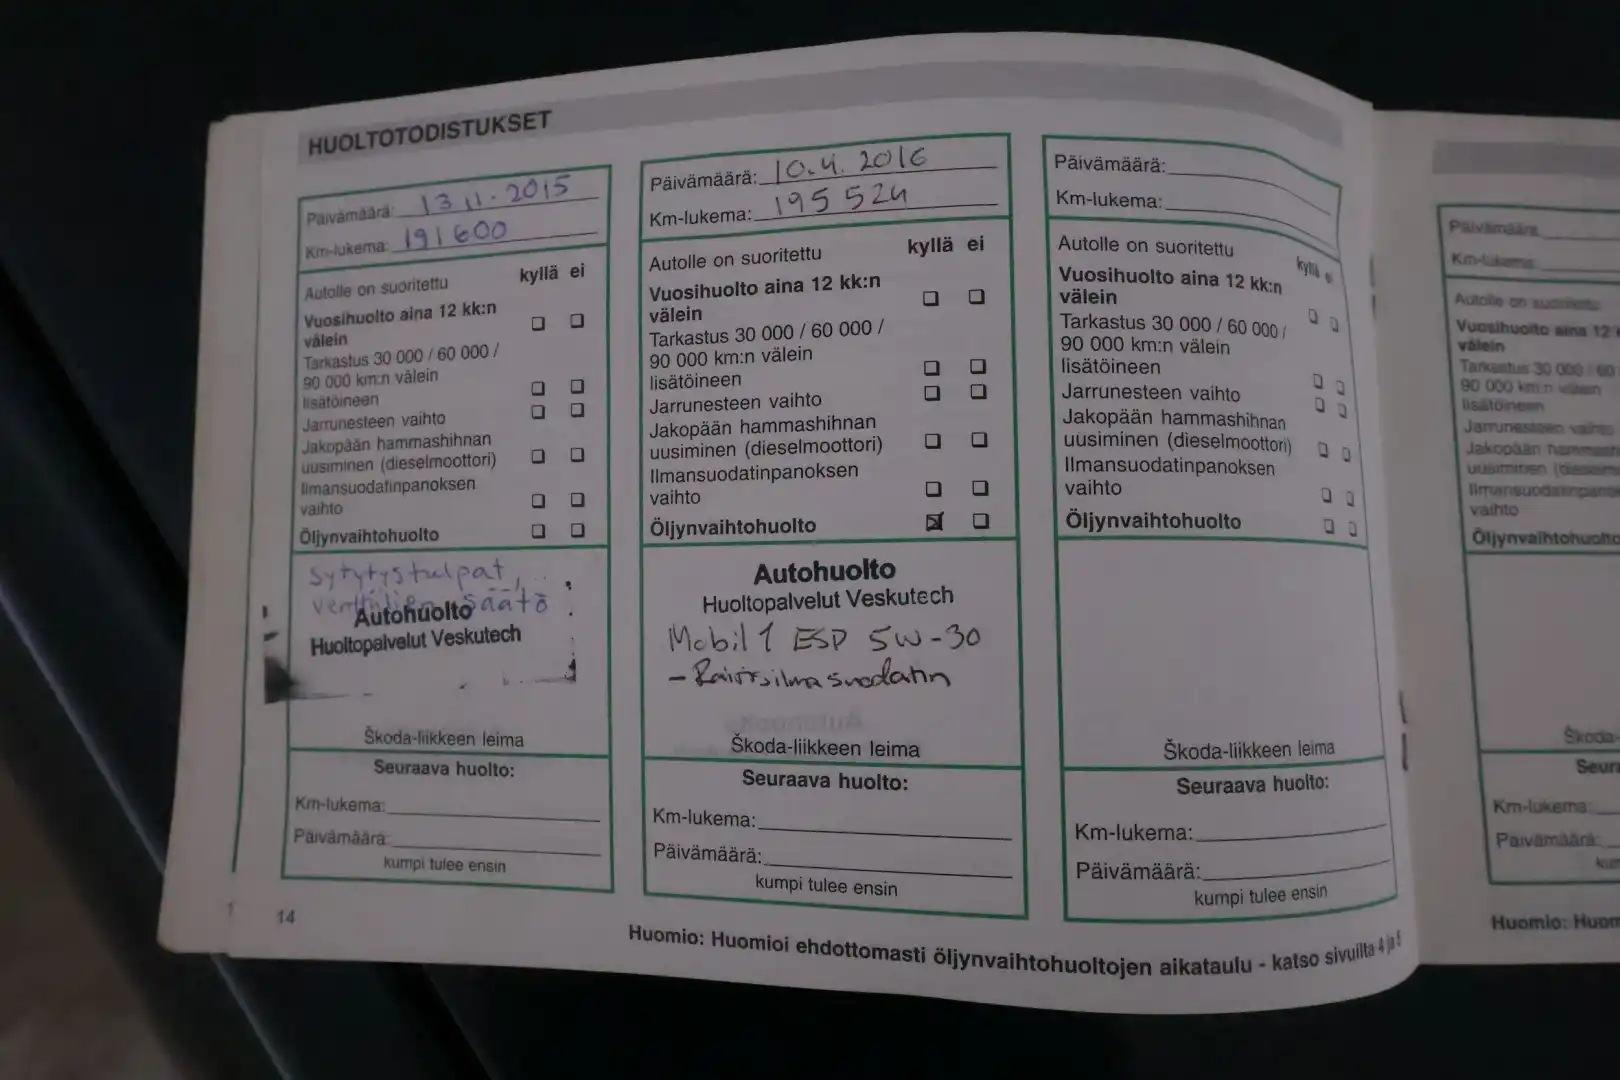 HUOLTOTODISTUKSET
Päivämäärä: 13.11.2015
Km-lukema: 191 600
Autolle on suoritettu
kyllä ei
Vuosihuolto aina 12 kk:n
välein
Tarkastus 30 000 / 60 000 /
90 000 km:n välein
lisätöineen
Jarrunesteen vaihto
Jakopään hammashihnan
uusiminen (dieselmoottori)
Ilmansuodatinpanoksen
vaihto
Öljynvaihtohuolto
Sytytystulpat,
venttiilien säätö
Autohuolto
Huoltopalvelut Veskutech
Škoda-liikkeen leima
Seuraava huolto:
Km-lukema:
Päivämäärä:
kumpi tulee ensin
14
Päivämäärä: 10.4.2016
Km-lukema: 195 524
Autolle on suoritettu
kyllä ei
Vuosihuolto aina 12 kk:n
välein
Tarkastus 30 000 / 60 000 /
90 000 km:n välein
lisätöineen
Jarrunesteen vaihto
Jakopään hammashihnan
uusiminen (dieselmoottori)
Ilmansuodatinpanoksen
vaihto
Öljynvaihtohuolto
Autohuolto
Huoltopalvelut Veskutech
Mobil 1 ESP 5W-30
- Raitisilmasuodatin
Škoda-liikkeen leima
Seuraava huolto:
Km-lukema:
Päivämäärä:
kumpi tulee ensin
Päivämäärä:
Km-lukema:
Autolle on suoritettu
kyllä ei
Vuosihuolto aina 12 kk:n
välein
Tarkastus 30 000 / 60 000 /
90 000 km:n välein
lisätöineen
Jarrunesteen vaihto
Jakopään hammashihnan
uusiminen (dieselmoottori)
Ilmansuodatinpanoksen
vaihto
Öljynvaihtohuolto
Škoda-liikkeen leima
Seuraava huolto:
Km-lukema:
Päivämäärä:
kumpi tulee ensin
Huomio: Huomioi ehdottomasti öljynvaihtohuoltojen aikataulu - katso sivuilta 4 ja
Päivämäärä
Km-lukema:
Autolle on suoritettu
Vuosihuolto aina 12
välein
Tarkastus 30 000 / 60
90 000 km:n välein
lisätöineen
Jarrunesteen vaihto
Jakopään
uusiminen
vaihto
Öljynvaihtohuolto
Škoda-
Km-lukema:
Päivämäärä:
Huomio: